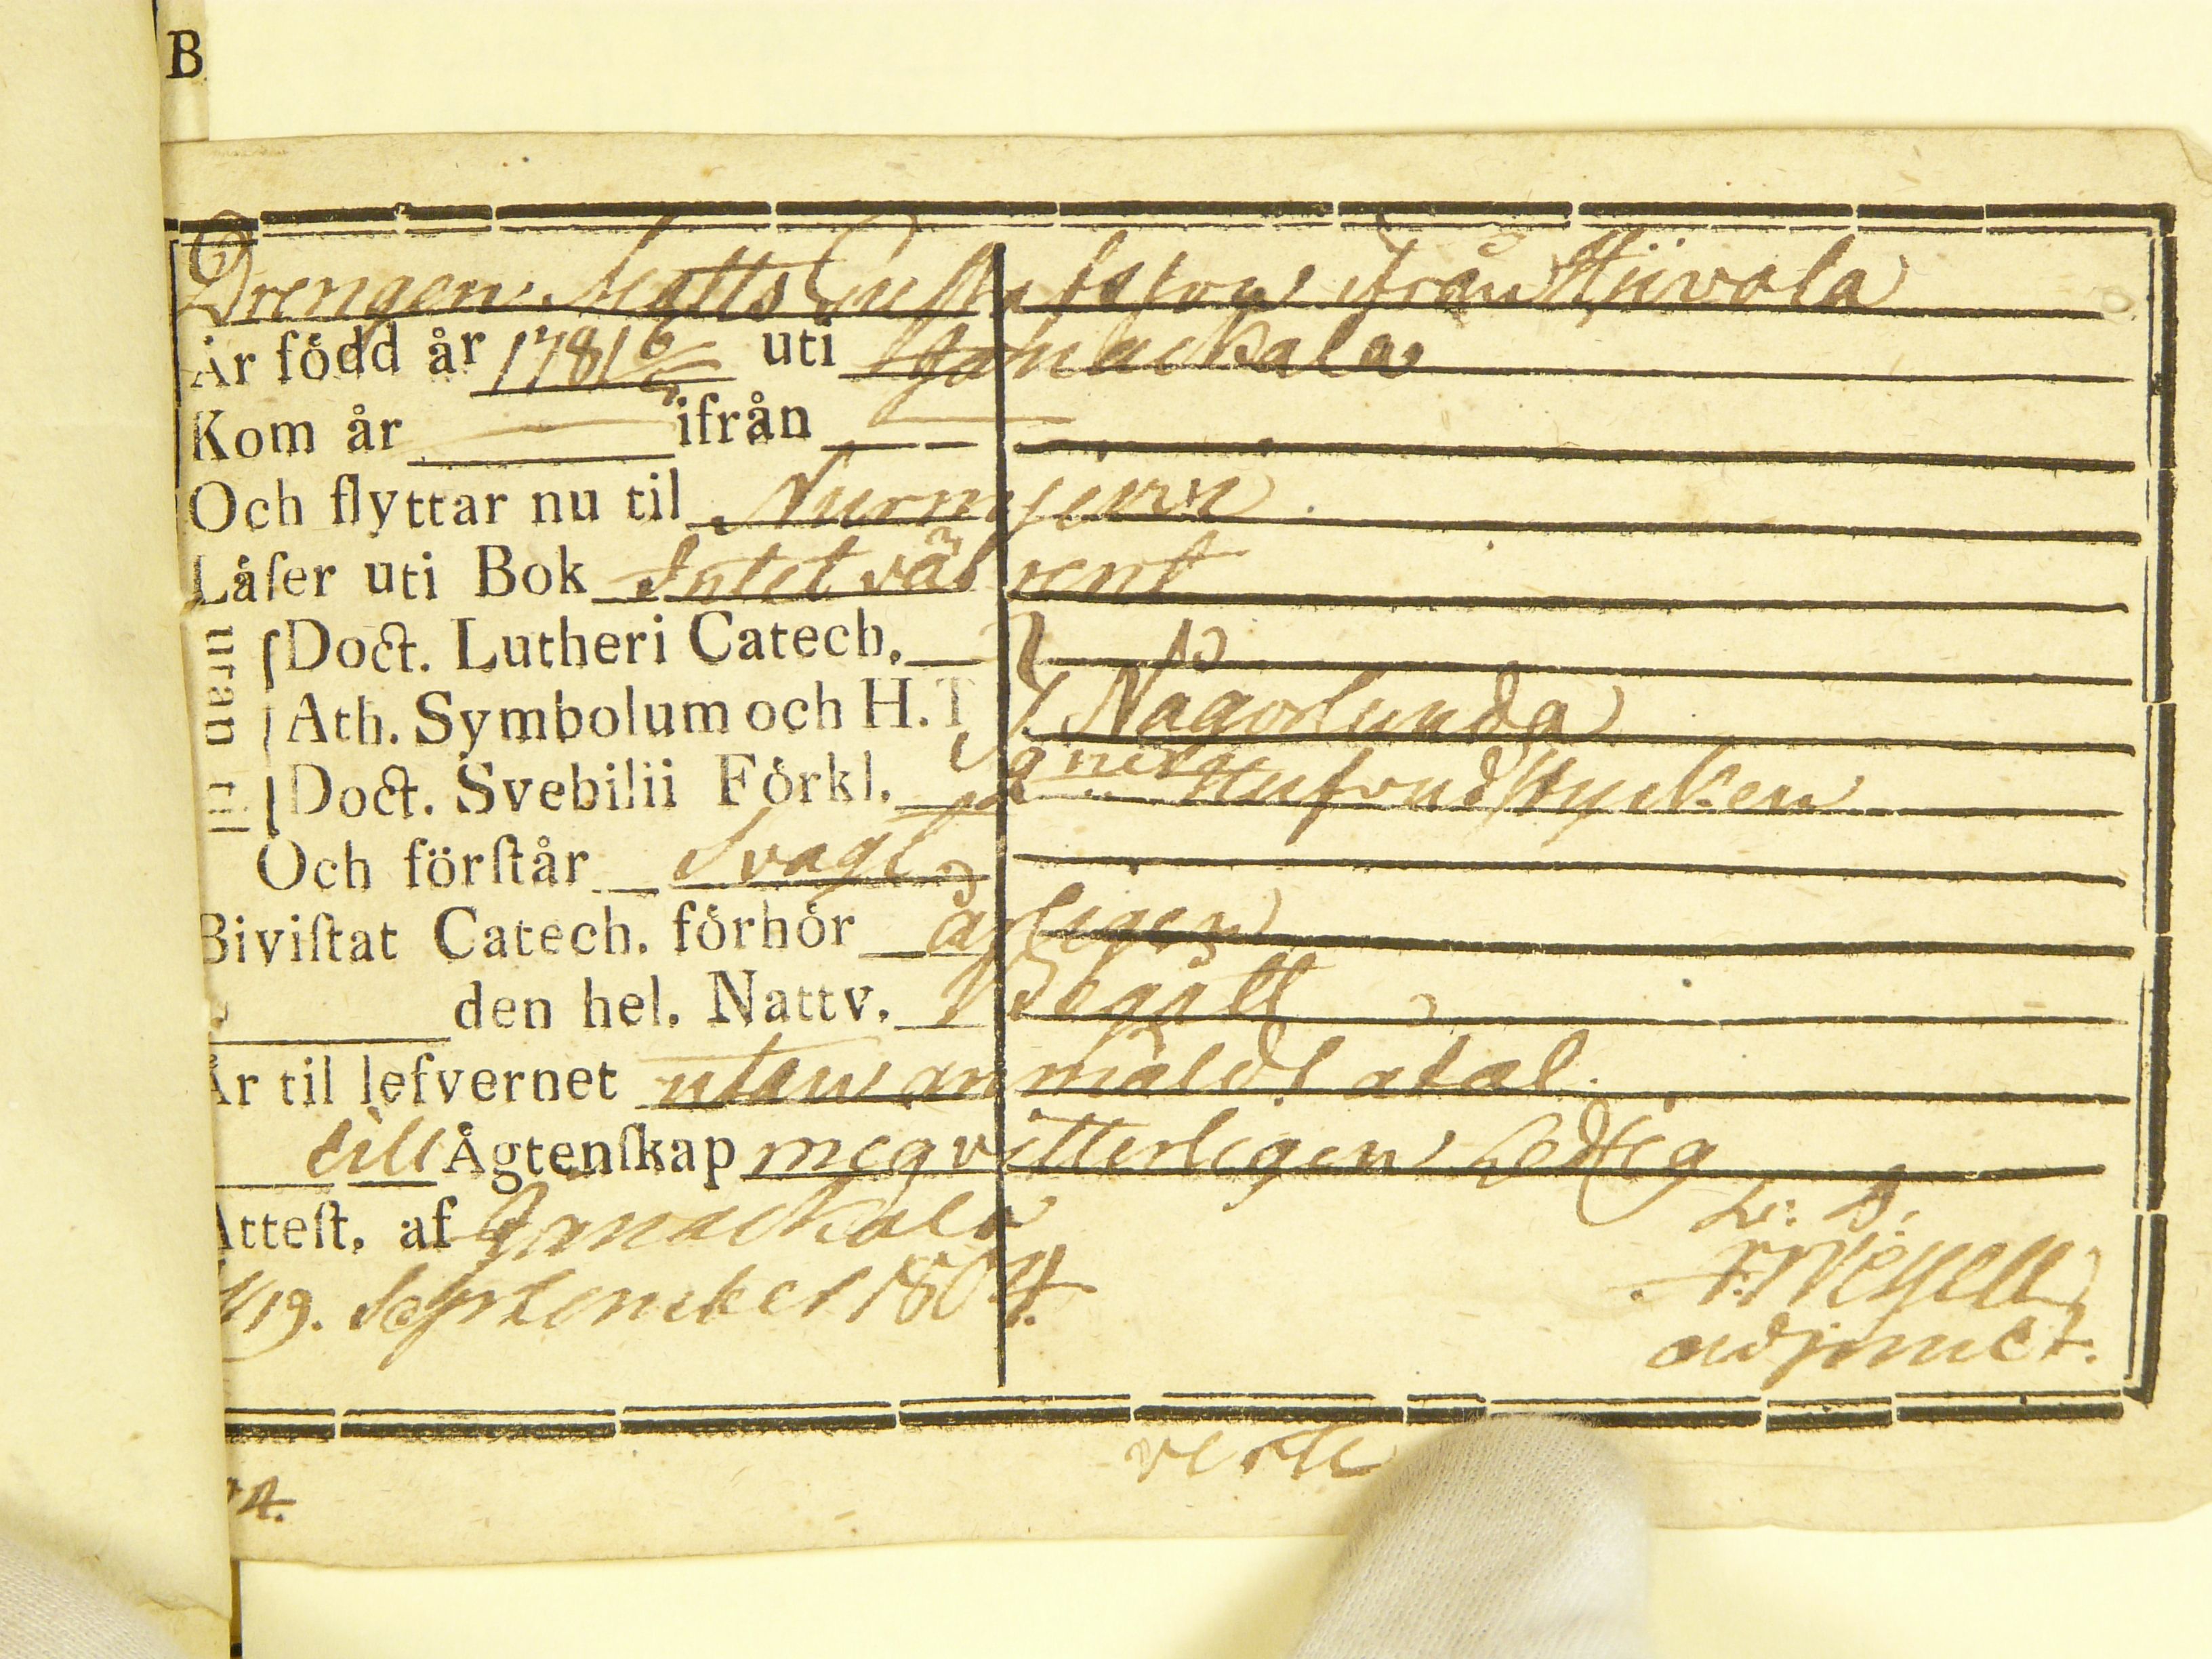 B
Drengen Matts Gustafsson ifrån Hijvola
Är född år 1781 6/5 uti Janackala
Kom år — ifrån —
Och flyttar nu til Nurmjervi
Läſer uti Bok Intet väl rent
utan til
Doct. Lutheri Catech.
Ath. Symbolum och H. T Någorlunda
Doct. Svebilii Förkl. Hufvudstycken
Och förſtår Svagt
Biviſtat Catech. förhör årligen
den hel. Nattv. Begått
Är til lefvernet utan anmäldt åtal.
till Ägtenſkap mig vitterligen Ledig
Atteſt. af Janackala L: S.
d 19. September 1804. adjunct.